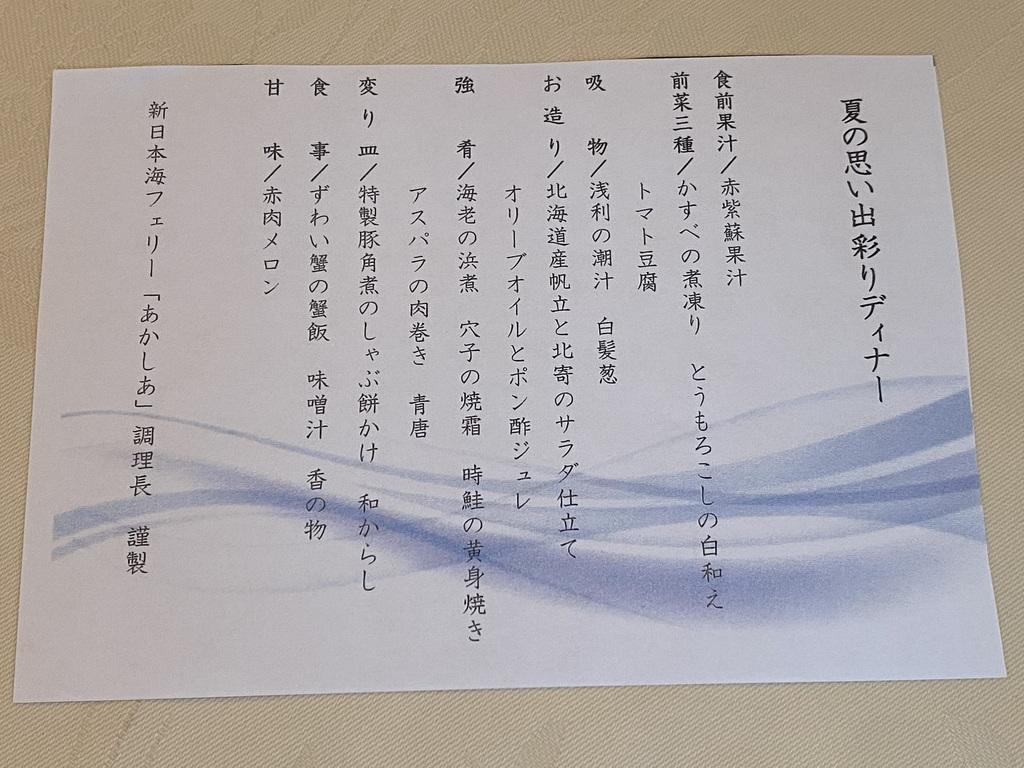 夏の思い出彩りディナー
食前果汁／赤紫蘇果汁
前菜三種／かすべの煮凍り　とうもろこしの白和え
トマト豆腐
吸　物／浅利の潮汁　白髪葱
お造り／北海道産帆立と北寄のサラダ仕立て
オリーブオイルとポン酢ジュレ
強　肴／海老の浜煮　穴子の焼霜　時鮭の黄身焼き
アスパラの肉巻き　青唐
変り皿／特製豚角煮のしゃぶ餅かけ　和からし
食　事／ずわい蟹の蟹飯　味噌汁　香の物
甘　味／赤肉メロン
新日本海フェリー「あかしあ」調理長　謹製